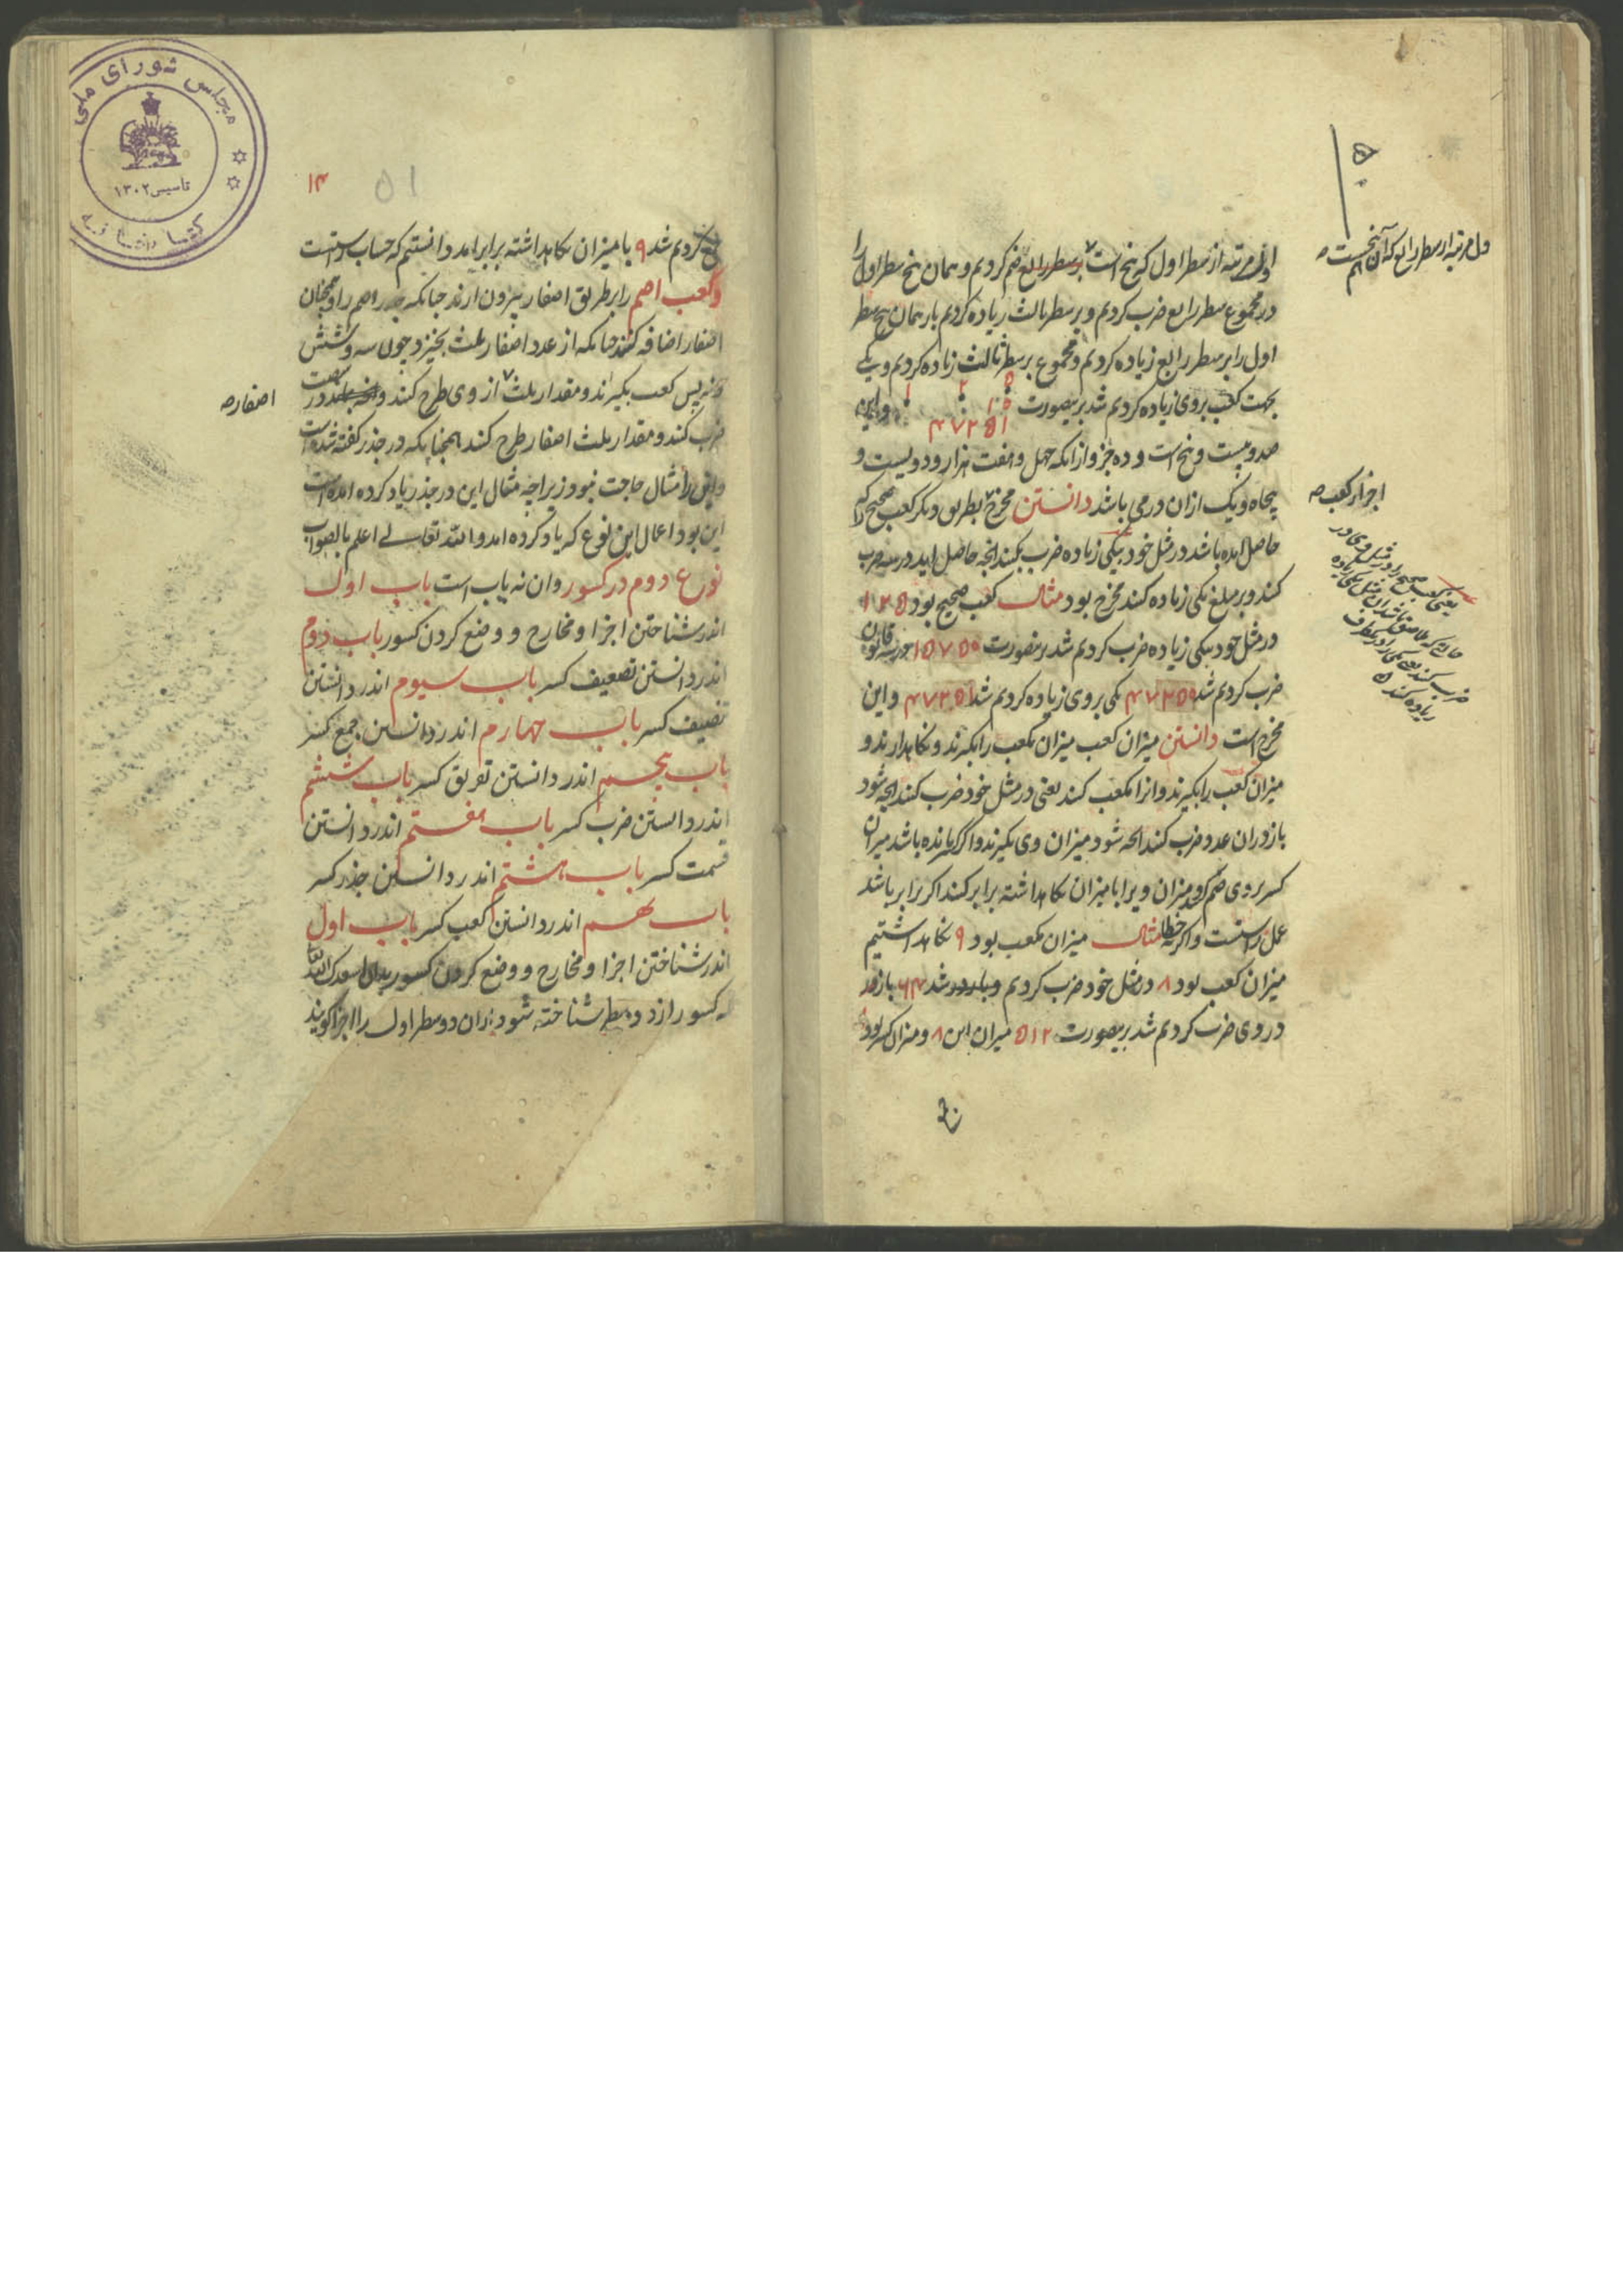 اول مرتبه از سطر اول که پنج است بر سطر رابع ضم کردیم و همان پنج سطر اول را
در مجموع سطر رابع ضرب کردیم و بر سطر ثالث زیاده کردیم باز همان پنج سطر
اول را بر سطر رابع زیاده کردیم و مجموع بر سطر ثالث زیاده کردیم و یکی
بجهت کعب بروی زیاده کردیم شد برینصورت
۴۷۲۵۱ و این
صد و بیست و پنج است و ده جزو از آنکه چهل و هفت هزار و دویست و
پنجاه و یک ازان درمی باشد دانستن مخرج بطریق دیگر کعب صحیح را که
حاصل امده باشد در مثل خود بیکی زیاده ضرب کنند انچه حاصل اید در سه ضرب
کنند و بر مبلغ یکی زیاده کنند مخرج بود مثال کعب صحیح بود ۱۲۵
در مثل خود بیکی زیاده ضرب کردیم شد برینصورت ۱۵۷۵۰ در سه
ضرب کردیم شد ۴۷۲۵۰ یکی بروی زیاده کردیم شد ۴۷۲۵۱ و این
مخرج است دانستن میزان کعب میزان مکعب را بگیرند و نگاهدارند و
میزان کعب را بگیرند و انرا مکعب کنند یعنی در مثل خود ضرب کنند انچه شود
باز دران عدد ضرب کنند انچه شود میزان وی بگیرند و اگر کسر مانده باشد میزان
کسر بروی ضم کرده میزان ویرا با میزان نگاهداشته برابر کنند اگر برابر باشد
عمل راستست و اگر نه خطا مثال میزان مکعب بود ۹ نگاهداشتیم
میزان کعب بود ۸ در مثل خود ضرب کردیم شد ۶۴ باز
در وی ضرب کردیم شد برینصورت ۵۱۲ میزان این ۸ و میزان کسر بود
اول مرتبه از سطر رابع که آن پنجست
اجزاء کعب صح
زیاده کنند
۱۴
۵۱
کردیم شد ۹ با میزان نگاهداشته برابر امد دانستیم که حساب راستست
و کعب اصم را بطریق اصفار بیرون ارند چنانکه جذر اصم را و همچنان
اصفار اضافه کنند چنانکه از عدد اصفار ثلث بخیزد چون سه و شش
و نه پس کعب بگیرند و مقدار ثلث از وی طرح کنند و
ضرب کنند و مقدار ثلث اصفار طرح کنند همچنانکه در جذر گفته شده است
و این را مثال حاجت نبود زیراچه مثال این در جذر یاد کرده امده است
این بود اعمال این نوع که یاد کرده امد و الله تعالی اعلم بالصواب
نوع دوم در کسور و ان نه باب است باب اول
اندر شناختن اجزا و مخارج و وضع کردن کسور باب دوم
اندر دانستن تضعیف کسر باب سیوم اندر دانستن
تنصیف کسر باب چهارم اندر دانستن جمع کسر
باب پنجم اندر دانستن تفریق کسر باب ششم
اندر دانستن ضرب کسر باب هفتم اندر دانستن
قسمت کسر باب هشتم اندر دانستن جذر کسر
باب نهم اندر دانستن کعب کسر باب اول
اندر شناختن اجزا و مخارج و وضع کردن کسور بدان اسعدک الله تعالی
که کسور از دو سطر شناخته شود ازان دو سطر اول را اجزا گویند
اصفار صح
مجلس شورای ملی
تاسیس ۱۳۰۲